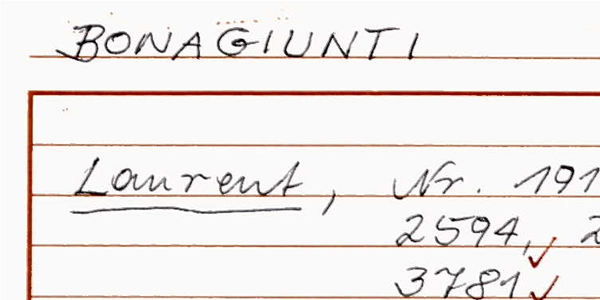 BONAGIUNTI
Laurent, Nr. 191
2594, 2
3781